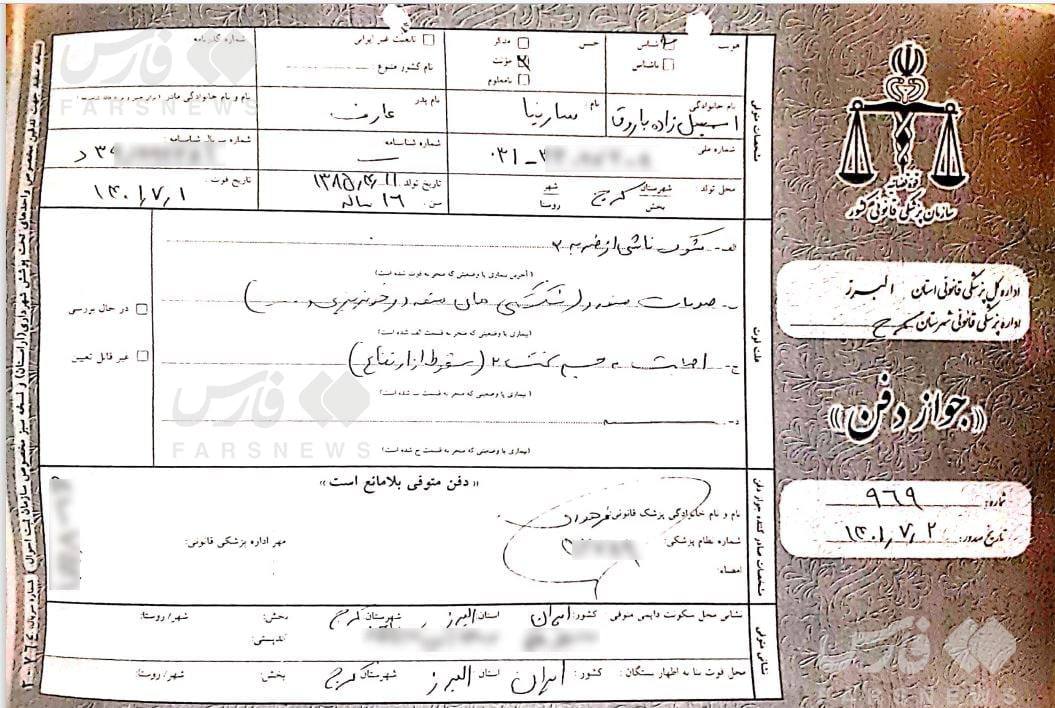 قوه قضائیه
سازمان پزشکی قانونی کشور
اداره کل پزشکی قانونی استان البرز
اداره پزشکی قانونی شهرستان کرج
«جواز دفن»
شماره: ۹۶۹
تاریخ صدور: ۱۴۰۱/۷/۲
مشخصات متوفی
هویت شناس ناشناس
جنس مذکر مؤنث نامعلوم
تابعیت غیر ایرانی
نام کشور متبوع:
شماره گذرنامه
نام خانوادگی اسمعیل زاده باروق
نام: سارینا
نام پدر عارف
نام و نام خانوادگی مادر
شماره ملی: ۰۳۱-۳
شماره شناسنامه
شماره سریال شناسنامه
د ۳۹
محل تولد: شهرستان کرج بخش شهر روستا
تاریخ تولد ۱۳۸۵/۴/۱۱
سن: ۱۶ ساله
تاریخ فوت: ۱۴۰۱/۷/۱
علت فوت
الف-
ناشی از ضربه
(آخرین بیماری یا وضعیتی که منجر به فوت شده است)
ب- صدمات متعدد (شکستگی های متعدد و خونریزی
(بیماری یا وضعیتی که منجر به قسمت الف شده است)
ج- اصابت به جسم سخت (سقوط از ارتفاع)
(بیماری یا وضعیتی که منجر به قسمت ب شده است)
د-
(بیماری یا وضعیتی که منجر به قسمت ج شده است)
در حال بررسی
غیر قابل تعیین
مشخصات صادر کننده جواز دفن
«دفن متوفی بلامانع است»
نام و نام خانوادگی پزشک قانونی:
شماره نظام پزشکی:
امضاء:
مهر اداره پزشکی قانونی:
نشانی متوفی
نشانی محل سکونت دایمی متوفی کشور: ایران استان: البرز شهرستان: کرج بخش: شهر/روستا:
کدپستی:
محل فوت بنا به اظهار بستگان: کشور: ایران استان: البرز شهرستان: کرج بخش: شهر/روستا:
فارس
FARSNEWS
فارس
FARSNEWS
فارس
FARSNEWS